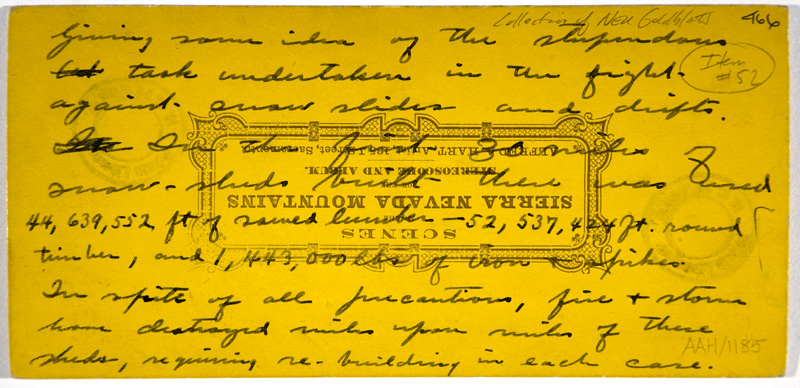 Collection of Neil Goldblatt 466
Item
#52
Giving some idea of the stupendous
task undertaken in the fight
against snow slides and drifts.
In the first 30 miles of
snow-sheds built there was used
44,639,552 ft of sawed lumber — 52,537,424 ft. round
timber, and 1,443,000 lbs of iron & spikes.
In spite of all precautions, fire & storm
have destroyed miles upon miles of these
sheds, requiring re-building in each case.
AAH/1185
SCENES
SIERRA NEVADA MOUNTAINS
STEREOSCOPE AND ALBUM.
ALFRED HART, Artist, Street, Sacramento